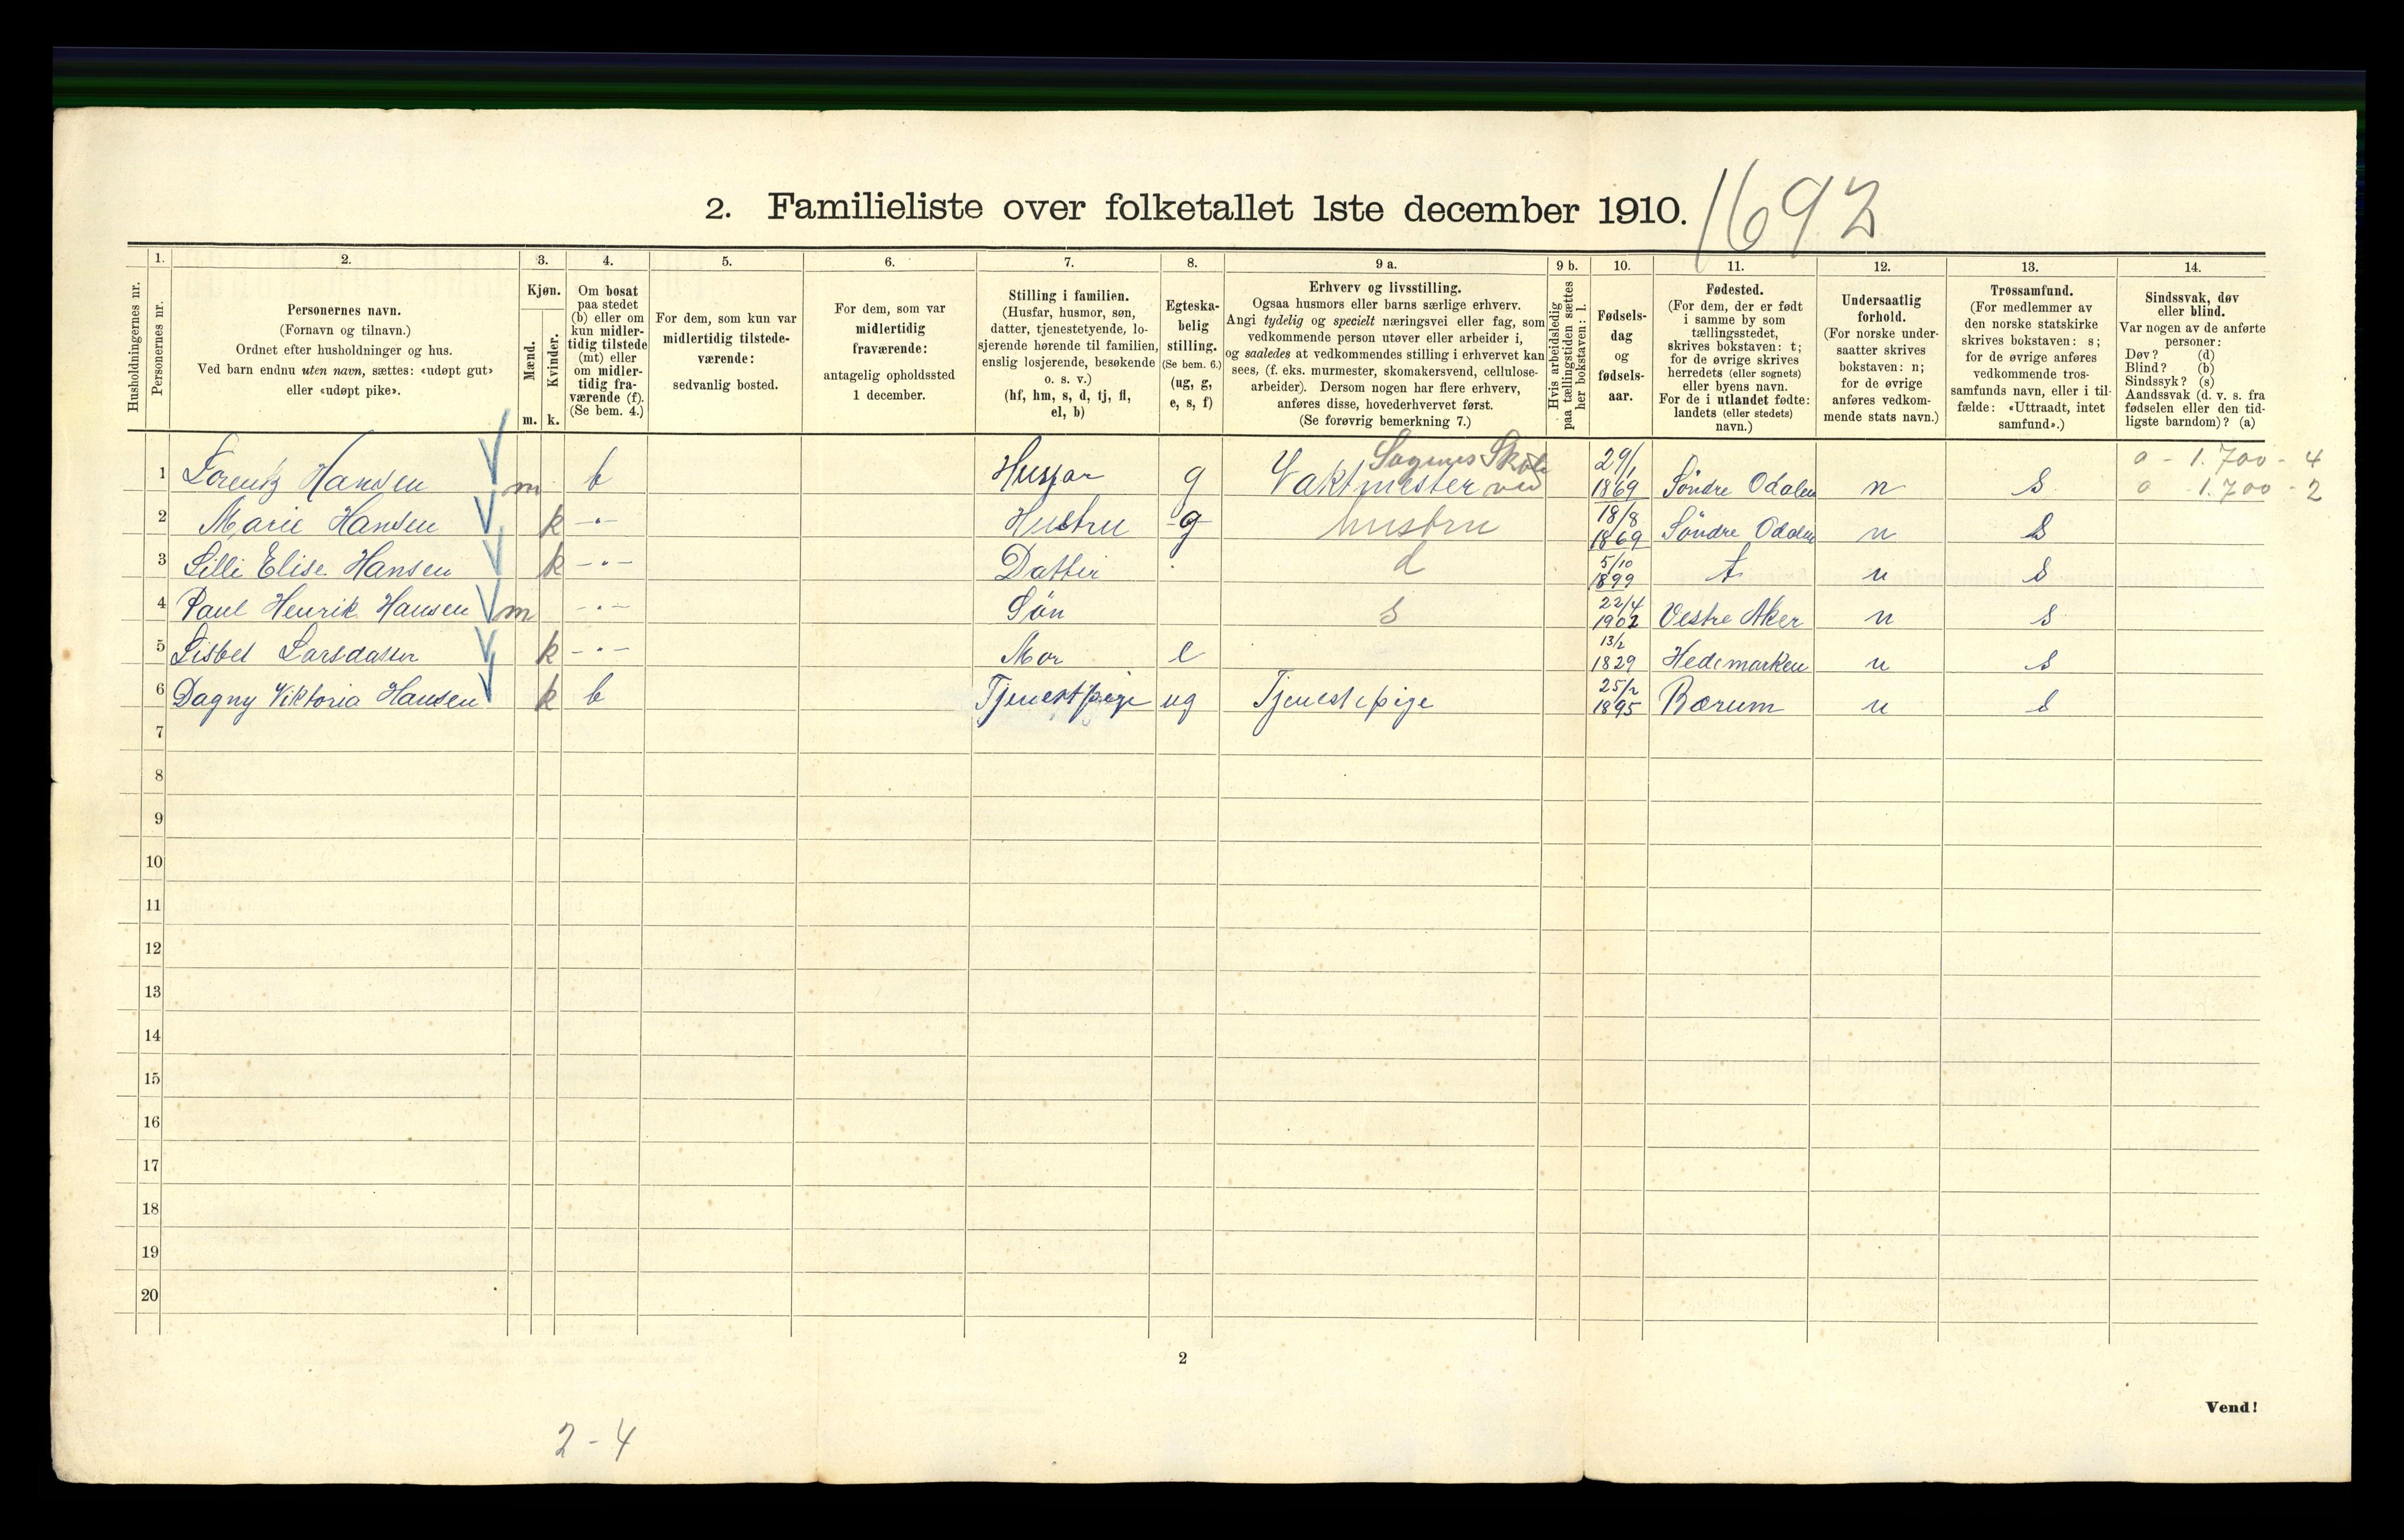 2. Familieliste over folketallet 1ste december 1910.
1692
Husholdningernes nr.
1.
Personernes nr.
2.
Personernes navn.
(Fornavn og tilnavn.)
Ordnet efter husholdninger og hus.
Ved barn endnu uten navn, sættes: «udøpt gut»
eller «udøpt pike».
3.
Kjøn.
Mænd.
Kvinder.
m. k.
4.
Om bosat
paa stedet
(b) eller om
kun midler-
tidig tilstede
(mt) eller
om midler-
tidig fra-
værende (f).
(Se bem. 4.)
5.
For dem, som kun var
midlertidig tilstede-
værende:
sedvanlig bosted.
6.
For dem, som var
midlertidig
fraværende:
antagelig opholdssted
1 december.
7.
Stilling i familien.
(Husfar, husmor, søn,
datter, tjenestetyende, lo-
sjerende hørende til familien,
enslig losjerende, besøkende
o. s. v.)
(hf, hm, s, d, tj, fl,
el, b)
8.
Egteska-
belig
stilling.
(Se bem. 6.)
(ug, g,
e, s, f)
9 a.
Erhverv og livsstilling.
Ogsaa husmors eller barns særlige erhverv.
Angi tydelig og specielt næringsvei eller fag, som
vedkommende person utøver eller arbeider i,
og saaledes at vedkommendes stilling i erhvervet kan
sees, (f. eks. murmester, skomakersvend, cellulose-
arbeider). Dersom nogen har flere erhverv,
anføres disse, hovederhvervet først.
(Se forøvrig bemerkning 7.)
9 b.
Hvis arbeidsledig
paa tællingstiden sættes
her bokstaven: l.
10.
Fødsels-
dag
og
fødsels-
aar.
11.
Fødested.
(For dem, der er født
i samme by som
tællingsstedet,
skrives bokstaven: t;
for de øvrige skrives
herredets (eller sognets)
eller byens navn.
For de i utlandet fødte:
landets (eller stedets)
navn.)
12.
Undersaatlig
forhold.
(For norske under-
saatter skrives
bokstaven: n;
for de øvrige
anføres vedkom-
mende stats navn.)
13.
Trossamfund.
(For medlemmer av
den norske statskirke
skrives bokstaven: s;
for de øvrige anføres
vedkommende tros-
samfunds navn, eller i til-
fælde: «Uttraadt, intet
samfund».)
14.
Sindssvak, døv
eller blind.
Var nogen av de anførte
personer:
Døv? (d)
Blind? (b)
Sindssyk? (s)
Aandssvak (d. v. s. fra
fødselen eller den tid-
ligste barndom)? (a)
1 Lorentz Hansen m b Husfar g Vaktmester ved Sagenes Skole 29/1 1869 Søndre Odalen n s 0 - 1.700 - 4
0 - 1.700 - 2
2 Marie Hansen k -"- Hustru g hustru 18/8 1869 Søndre Odalen n s
3 Lilli Elise Hansen k -"- Datter d 5/10 1899 t n s
4 Paul Henrik Hansen m -"- Søn s 22/4 1902 Vestre Aker n s
5 Lisbet Larsdatter k -"- Mor e 13/2 1829 Hedemarken n s
6 Dagny Viktoria Hansen k b Tjenestpige ug Tjenestepige 25/2 1895 Bærum n s
7
8
9
10
11
12
13
14
15
16
17
18
19
20
2
Vend!
2-4